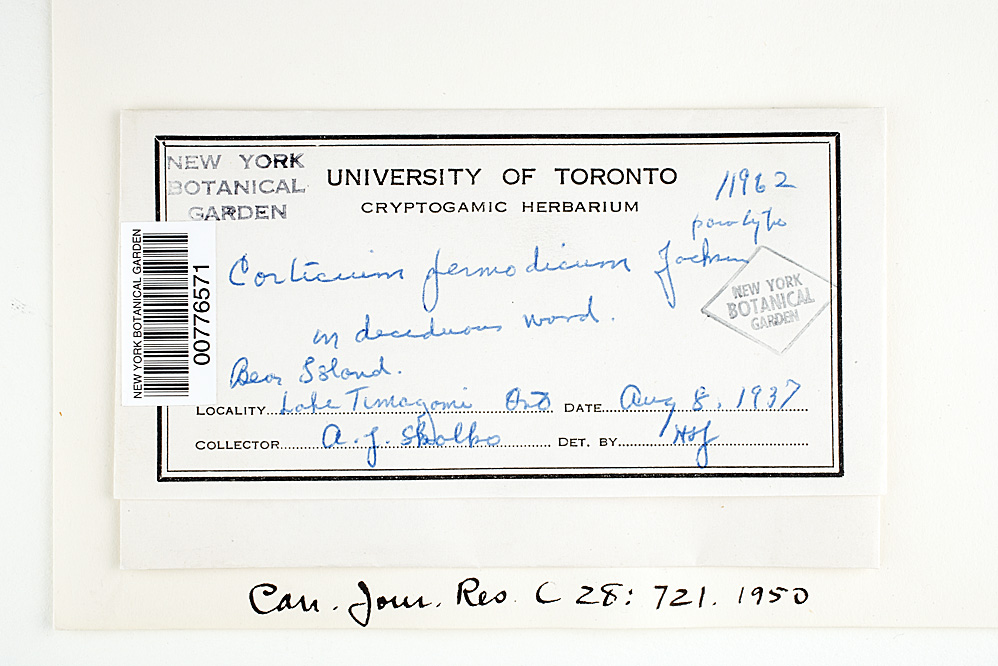 NEW YORK
BOTANICAL
GARDEN
UNIVERSITY OF TORONTO
CRYPTOGAMIC HERBARIUM
11962
paratype
NEW YORK BOTANICAL GARDEN
00776571
Corticium fermodicum Jackson
NEW YORK
BOTANICAL
GARDEN
on deciduous wood.
Bear Island.
LOCALITY Lake Timagomi Ont DATE Aug 8, 1937
COLLECTOR A. J. Skolko DET. BY HSJ
Can. Jour. Res. C 28: 721. 1950